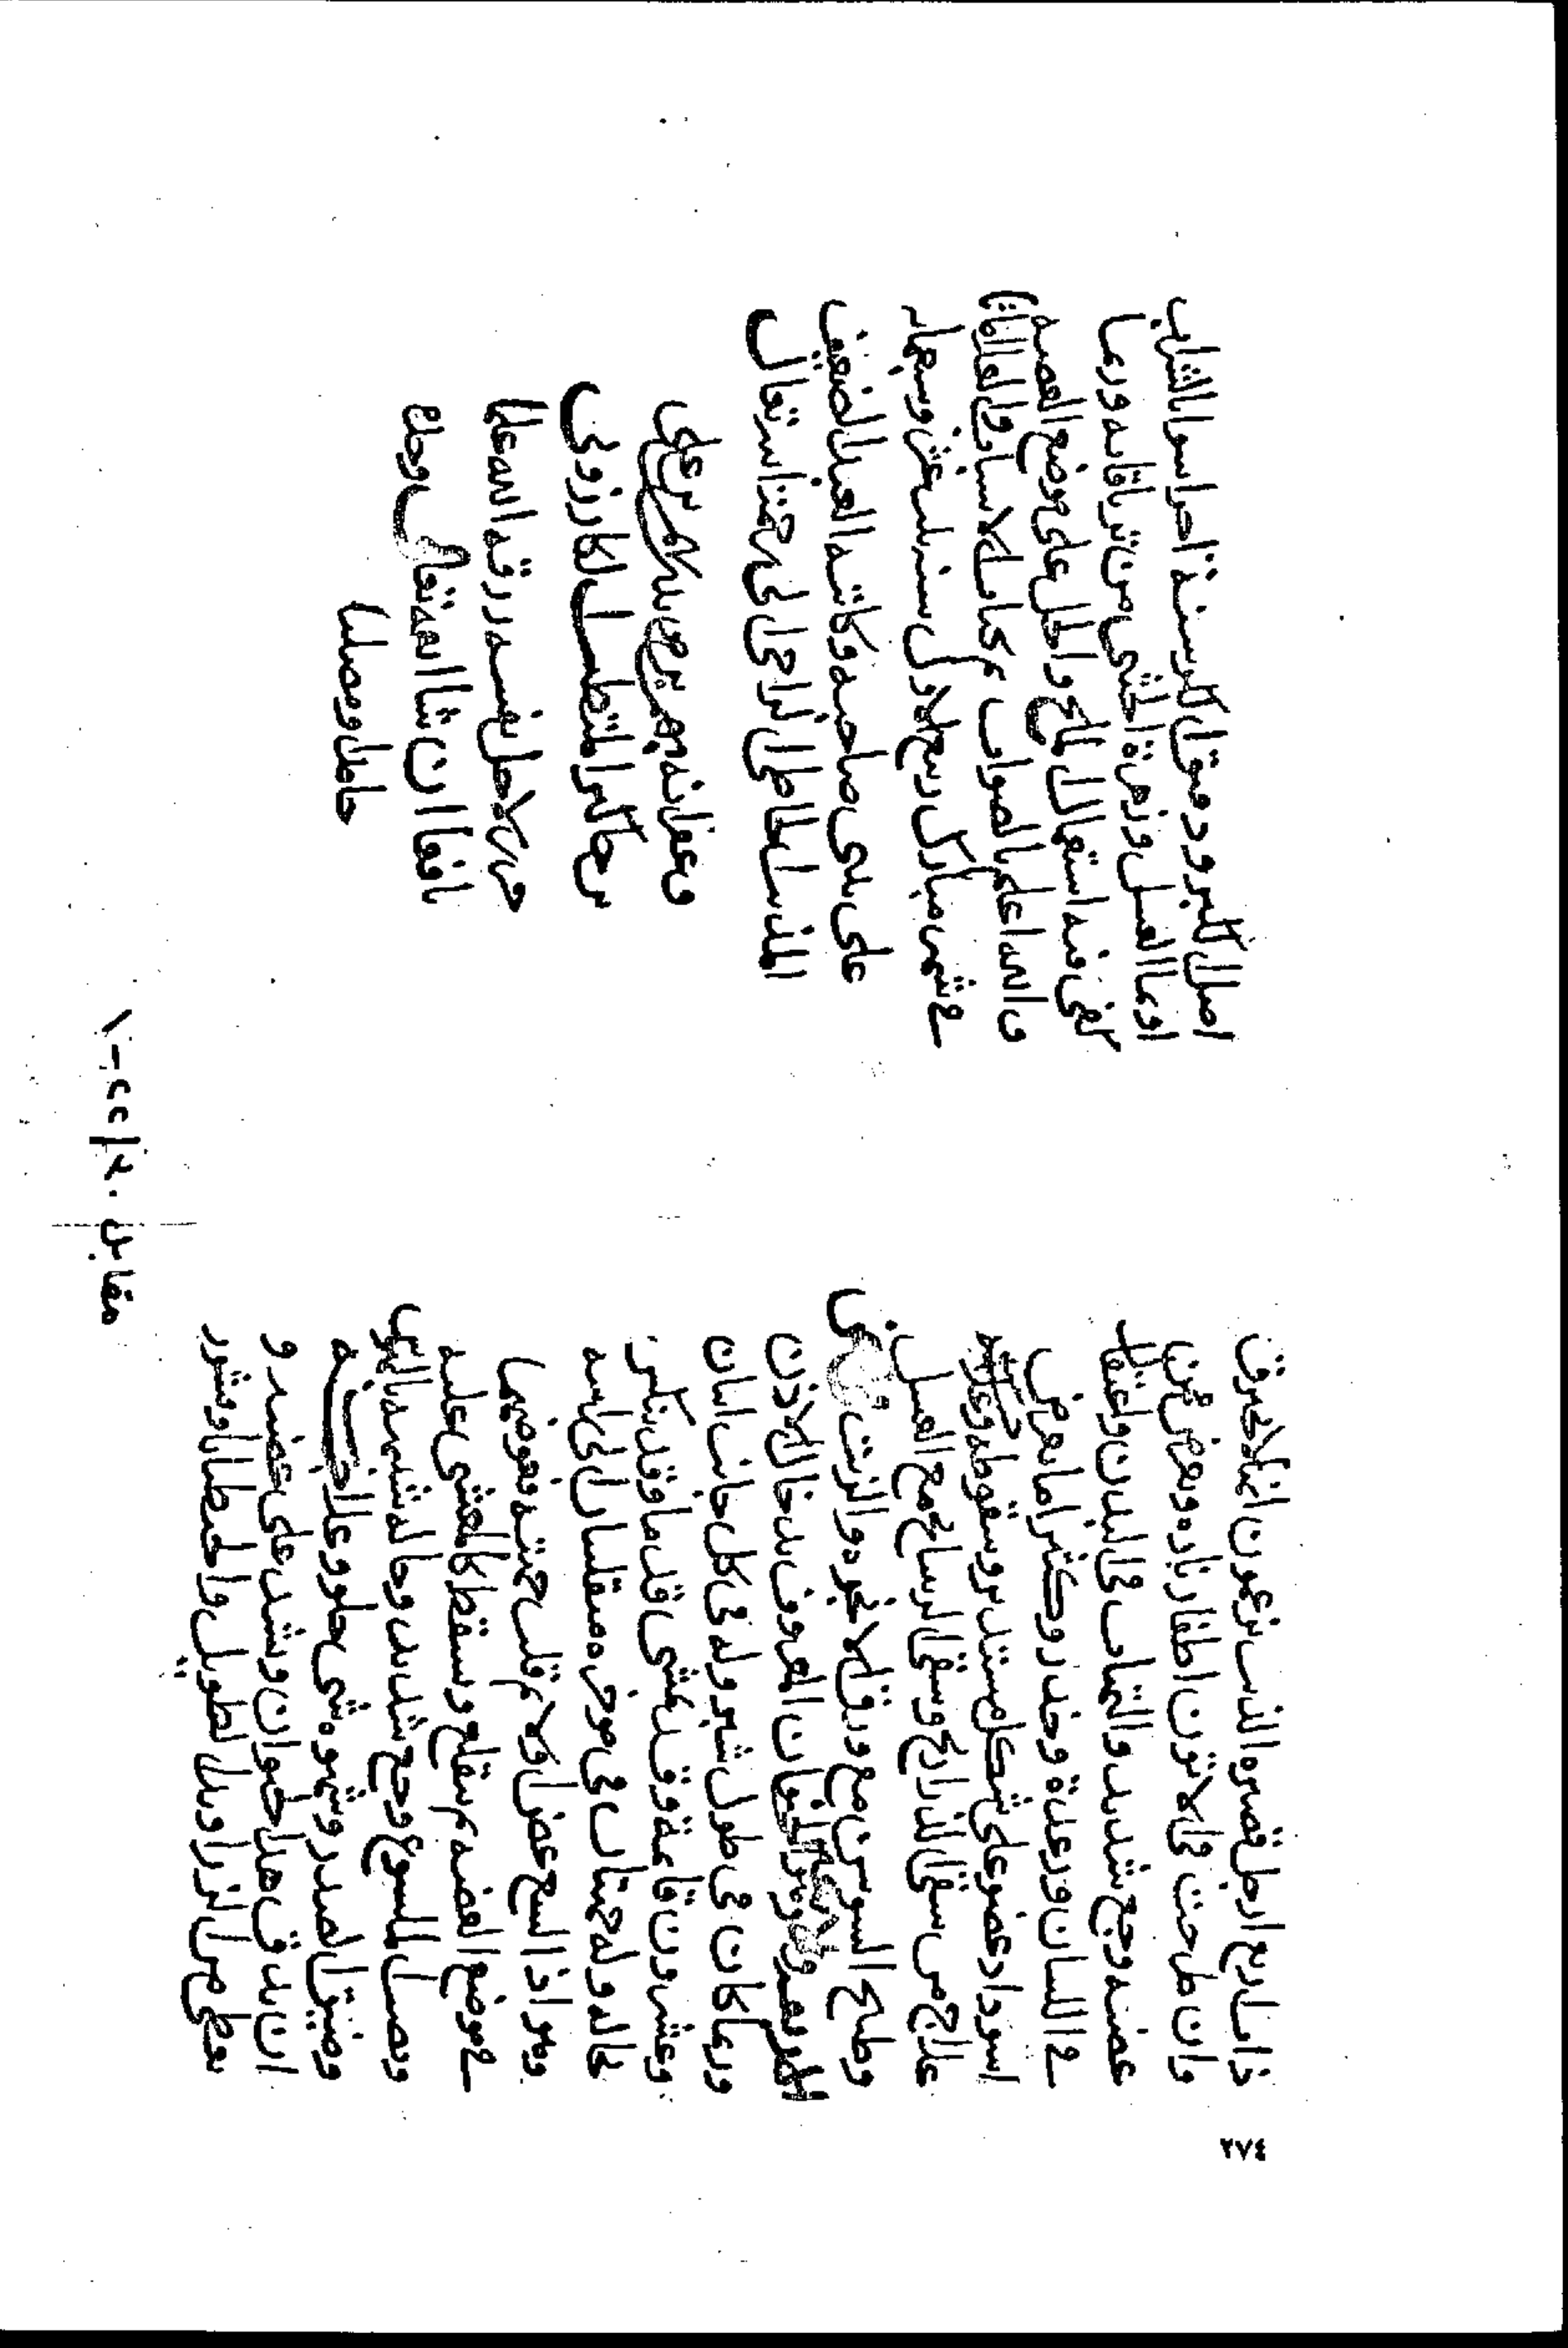 ٢٧٤
ذات اربع ارجل قصيره الذنب يزعمون انها لا تحترق
وان طرحت في الاتون اطفات ناره ويعرض عن
عضه وجع شديد والتهاب في البدن واعتقال
في اللسان ورعدة وخدر وكثيرا ما يعرض
اسوداد عضو على شكل مستدير وسقوطه وعلاجه
علاج من سقي الذراريح وسقي مع العسل
وطبيخ السوسن مع ورق الانجره والزيت في
المعروف بدخال الاذن
وربما كان في طول شبر وله في كل جانب اثنان
وعشرون قائمة وقد يمشي قدما وقد ينكص
وله حمتان في موخره منقلبتان الى راسه
وهو اذا السع عض اولا ثم قلب حمتيه
في موضع العضه ثم ينقلع ويسقط كالمغشى عليه
ويصيب الملسوع وجع شديد وحالة شبيهة بالبهر
وضيق الصدر وشهوة شي حلو وعلاجه
ان يدق هذا الحيوان ويشد على عضه و
يعطى من الزراوند الطويل والجنطيانا وقشور
اصل الكبر ودقيق الكرسنة اجزا سوا بالشراب
او ما العسل وزهرة الخنثى من ترياقاته وربما
كفى منه استعمال الملح والخل على موضع العضه
والله اعلم بالصواب
في شهر مبارك ربيع الاول سنة ست عشر وسبعمايه
على يدي صاحبه وكاتبه العبد الضعيف
المذنب الخاطي الراجي الى رحمة الله تعال
وغفرانه بن علي
المتطبب الكازروني
لاجل نفسه رزقه الله علما
نافعا ان شا الله تعالى وحده
حامدا ومصليا